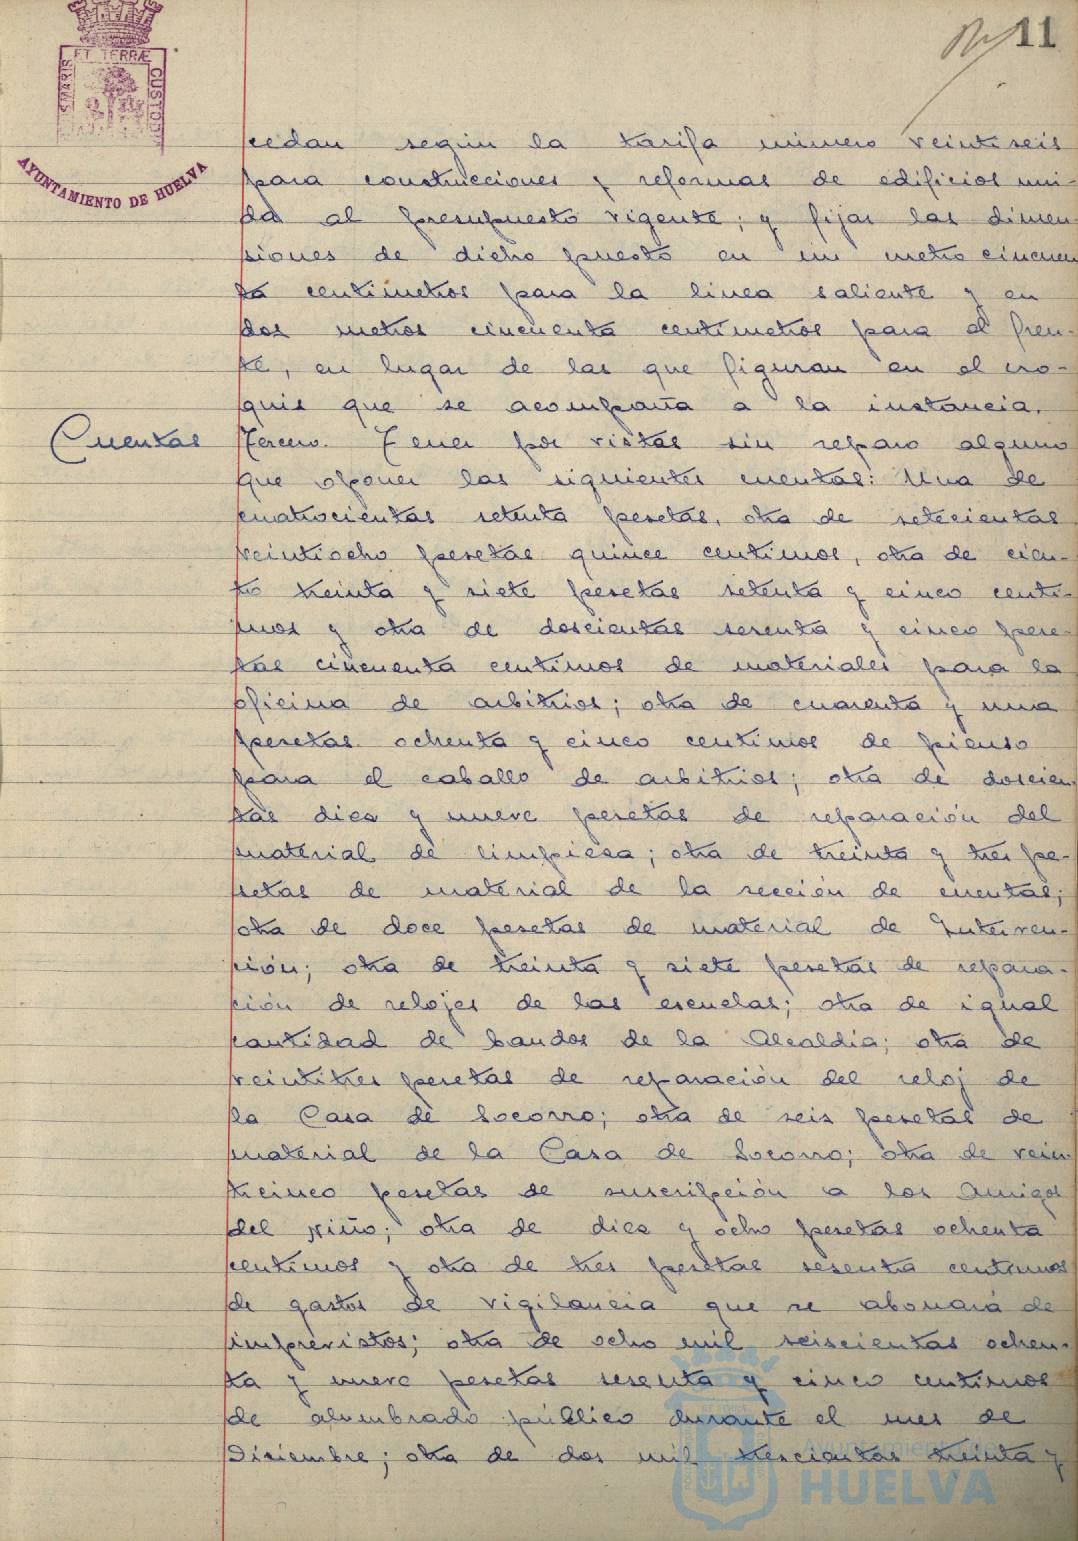 11
ET TERRÆ
CUSTOD
AYUNTAMIENTO DE HUELVA
cedan según la tarifa número veintiseis
para construcciones y reformas de edificios uni-
da al presupuesto vigente; y fijar las dimen-
siones de dicho puesto en un metro cincuen
ta centimetros para la linea saliente y en
dos metros cincuenta centimetros para el fren-
te, en lugar de las que figuran en el cro-
quis que se acompaña a la instancia.
Cuentas Tercero. Tener por vistas sin reparo alguno
que oponer las siguientes cuentas: Una de
cuatrocientas setenta pesetas, otra de setecientas
veintiocho pesetas quince centimos, otra de cien-
to treinta y siete pesetas setenta y cinco centi-
mos y otra de doscientas sesenta y cinco pese-
tas cincuenta centimos de materiales para la
oficina de arbitrios; otra de cuarenta y una
pesetas ochenta y cinco centimos de pienso
para el caballo de arbitrios; otra de doscien-
tas diez y nueve pesetas de reparación del
material de limpieza; otra de treinta y tres pe-
setas de material de la sección de cuentas;
otra de doce pesetas de material de Interven-
ción; otra de treinta y siete pesetas de repara-
ción de relojes de las escuelas; otra de igual
cantidad de bandos de la Alcaldia; otra de
veintitres pesetas de reparación del reloj de
la Casa de Socorro; otra de seis pesetas de
material de la Casa de Socorro; otra de vein-
ticinco pesetas de suscripción a los Amigos
del Niño; otra de diez y ocho pesetas ochenta
centimos y otra de tres pesetas sesenta centimos
de gastos de vigilancia que se abonará de
imprevistos; otra de ocho mil seiscientas ochen-
ta y nueve pesetas sesenta y cinco centimos
de alumbrado público durante el mes de
Diciembre; otra de dos mil trescientas treinta y
Ayuntamiento de
HUELVA